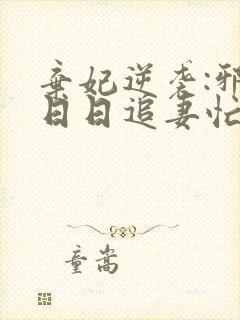 弃妃逆袭:邪
日日追妻忙
童嵩